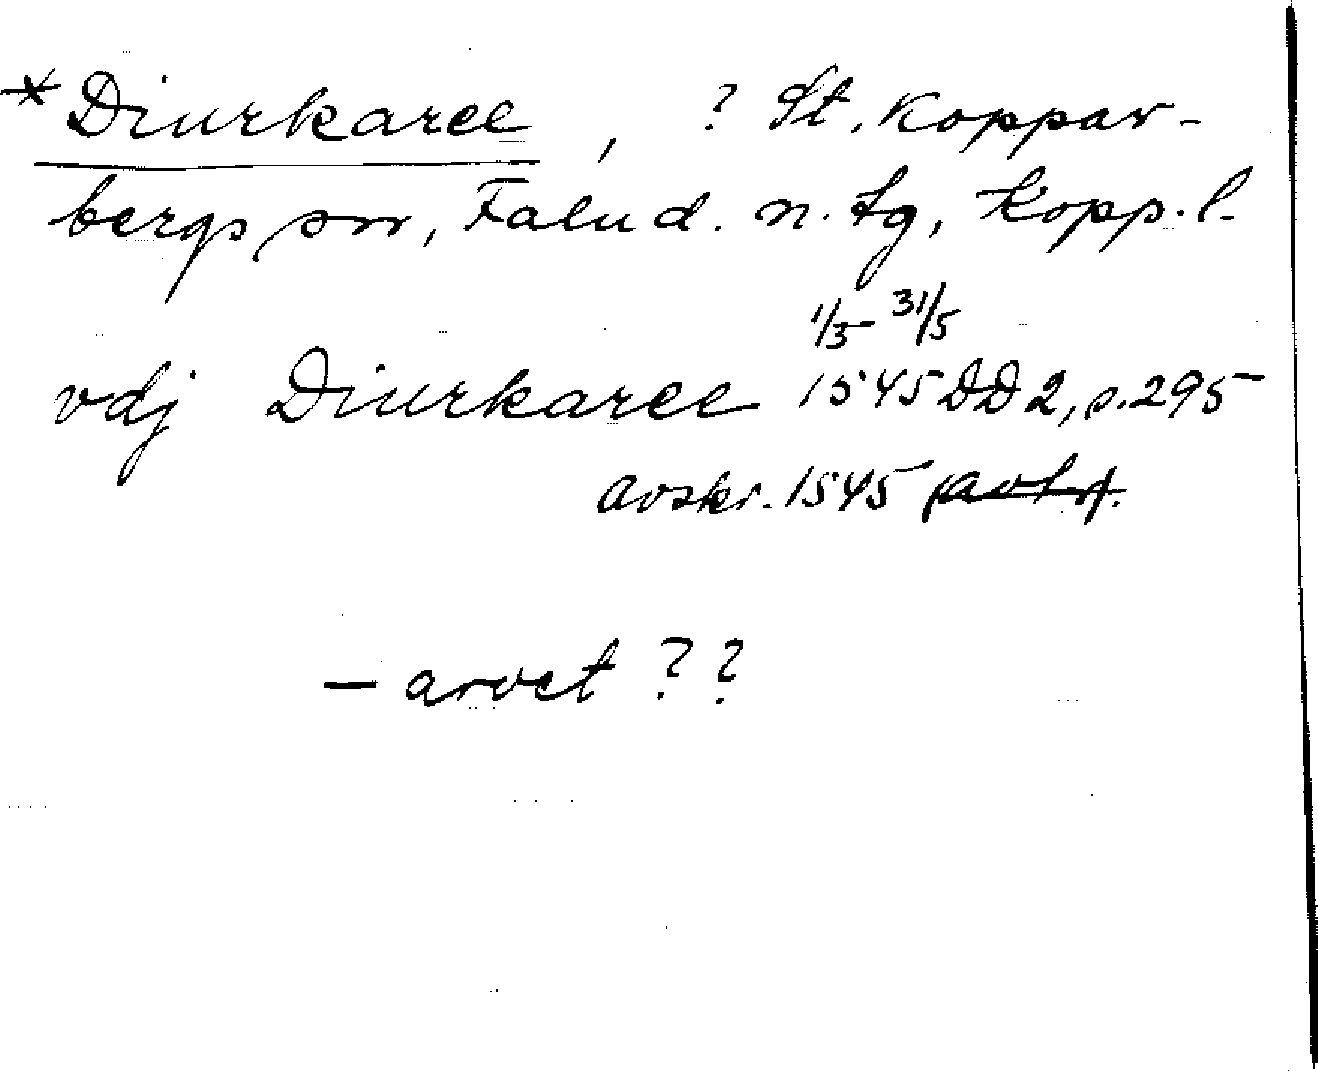 *Diurkaree, ? St. Koppar-
bergs sn, Falu d. n. tg, Kopp. l.
1/3 - 31/5
vdj Diurkaree 1545 DD 2, s. 295
avskr. 1545
- arvet ??